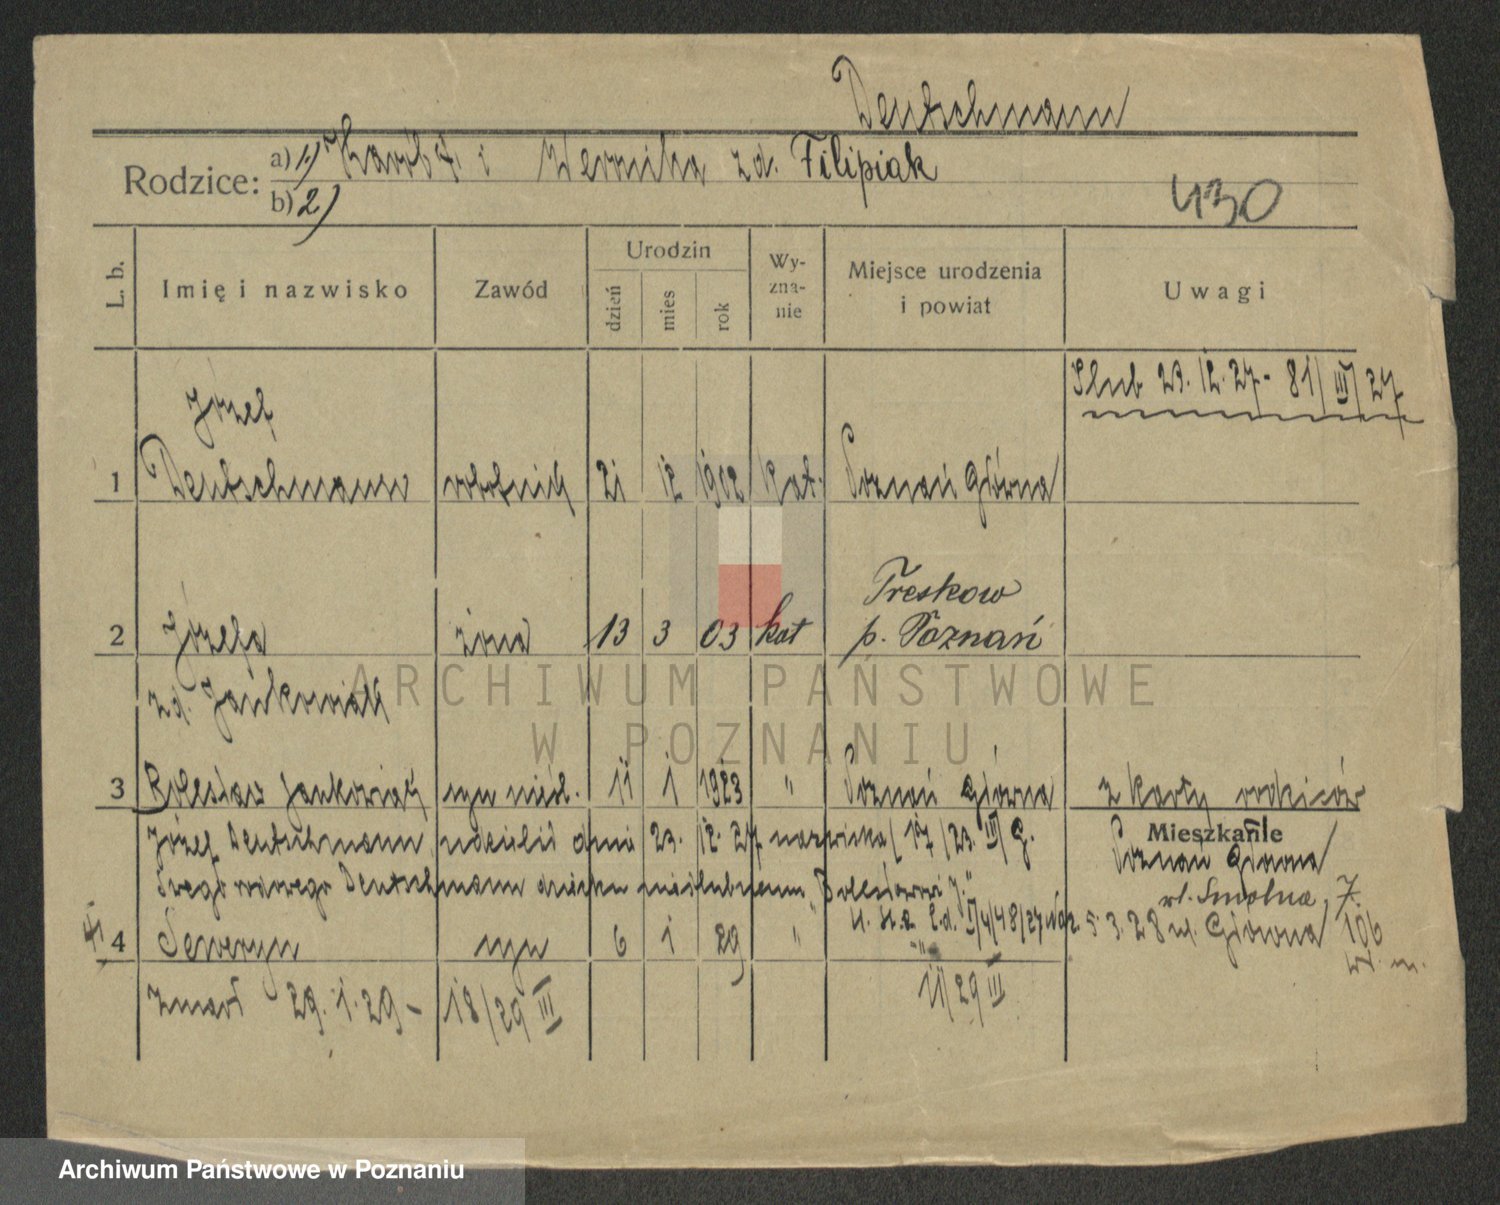 Deutschmann
Rodzice: a) 1) i Weronika zd. Filipiak
b) 2)
430
L. b. Imię i nazwisko Zawód Urodzin dzień mies rok Wy-zna-nie Miejsce urodzenia i powiat Uwagi
Ślub 23. 12. 27 - 81/III/27
Józef
1 Deutschmann robotnik 21 12 1902 kat. Poznań Główna
Treskow
2 Józefa żona 13 3 03 kat p. Poznań
zd. Jankowiak
3 Bolesław Jankowiak syn nieśl. 11 1 1923 " Poznań Główna z karty rodziców
Józef Deutschmann udzielił dnia 23. 12. 27 nazwiska (17/23. III/G.
Mieszkanie
Poznań Główna
swego rodowego Deutschmann dziecku nieślubnemu "Bolesławowi J."
ul. Smolna 7.
U. St. 5. 3. 28 ul. Główna 106
4 Seweryn syn 6 1 29 " "
w. m.
zmarł 29. 1. 29 - 18/29 III 11/29 III
ARCHIWUM PAŃSTWOWE
W POZNANIU
Archiwum Państwowe w Poznaniu